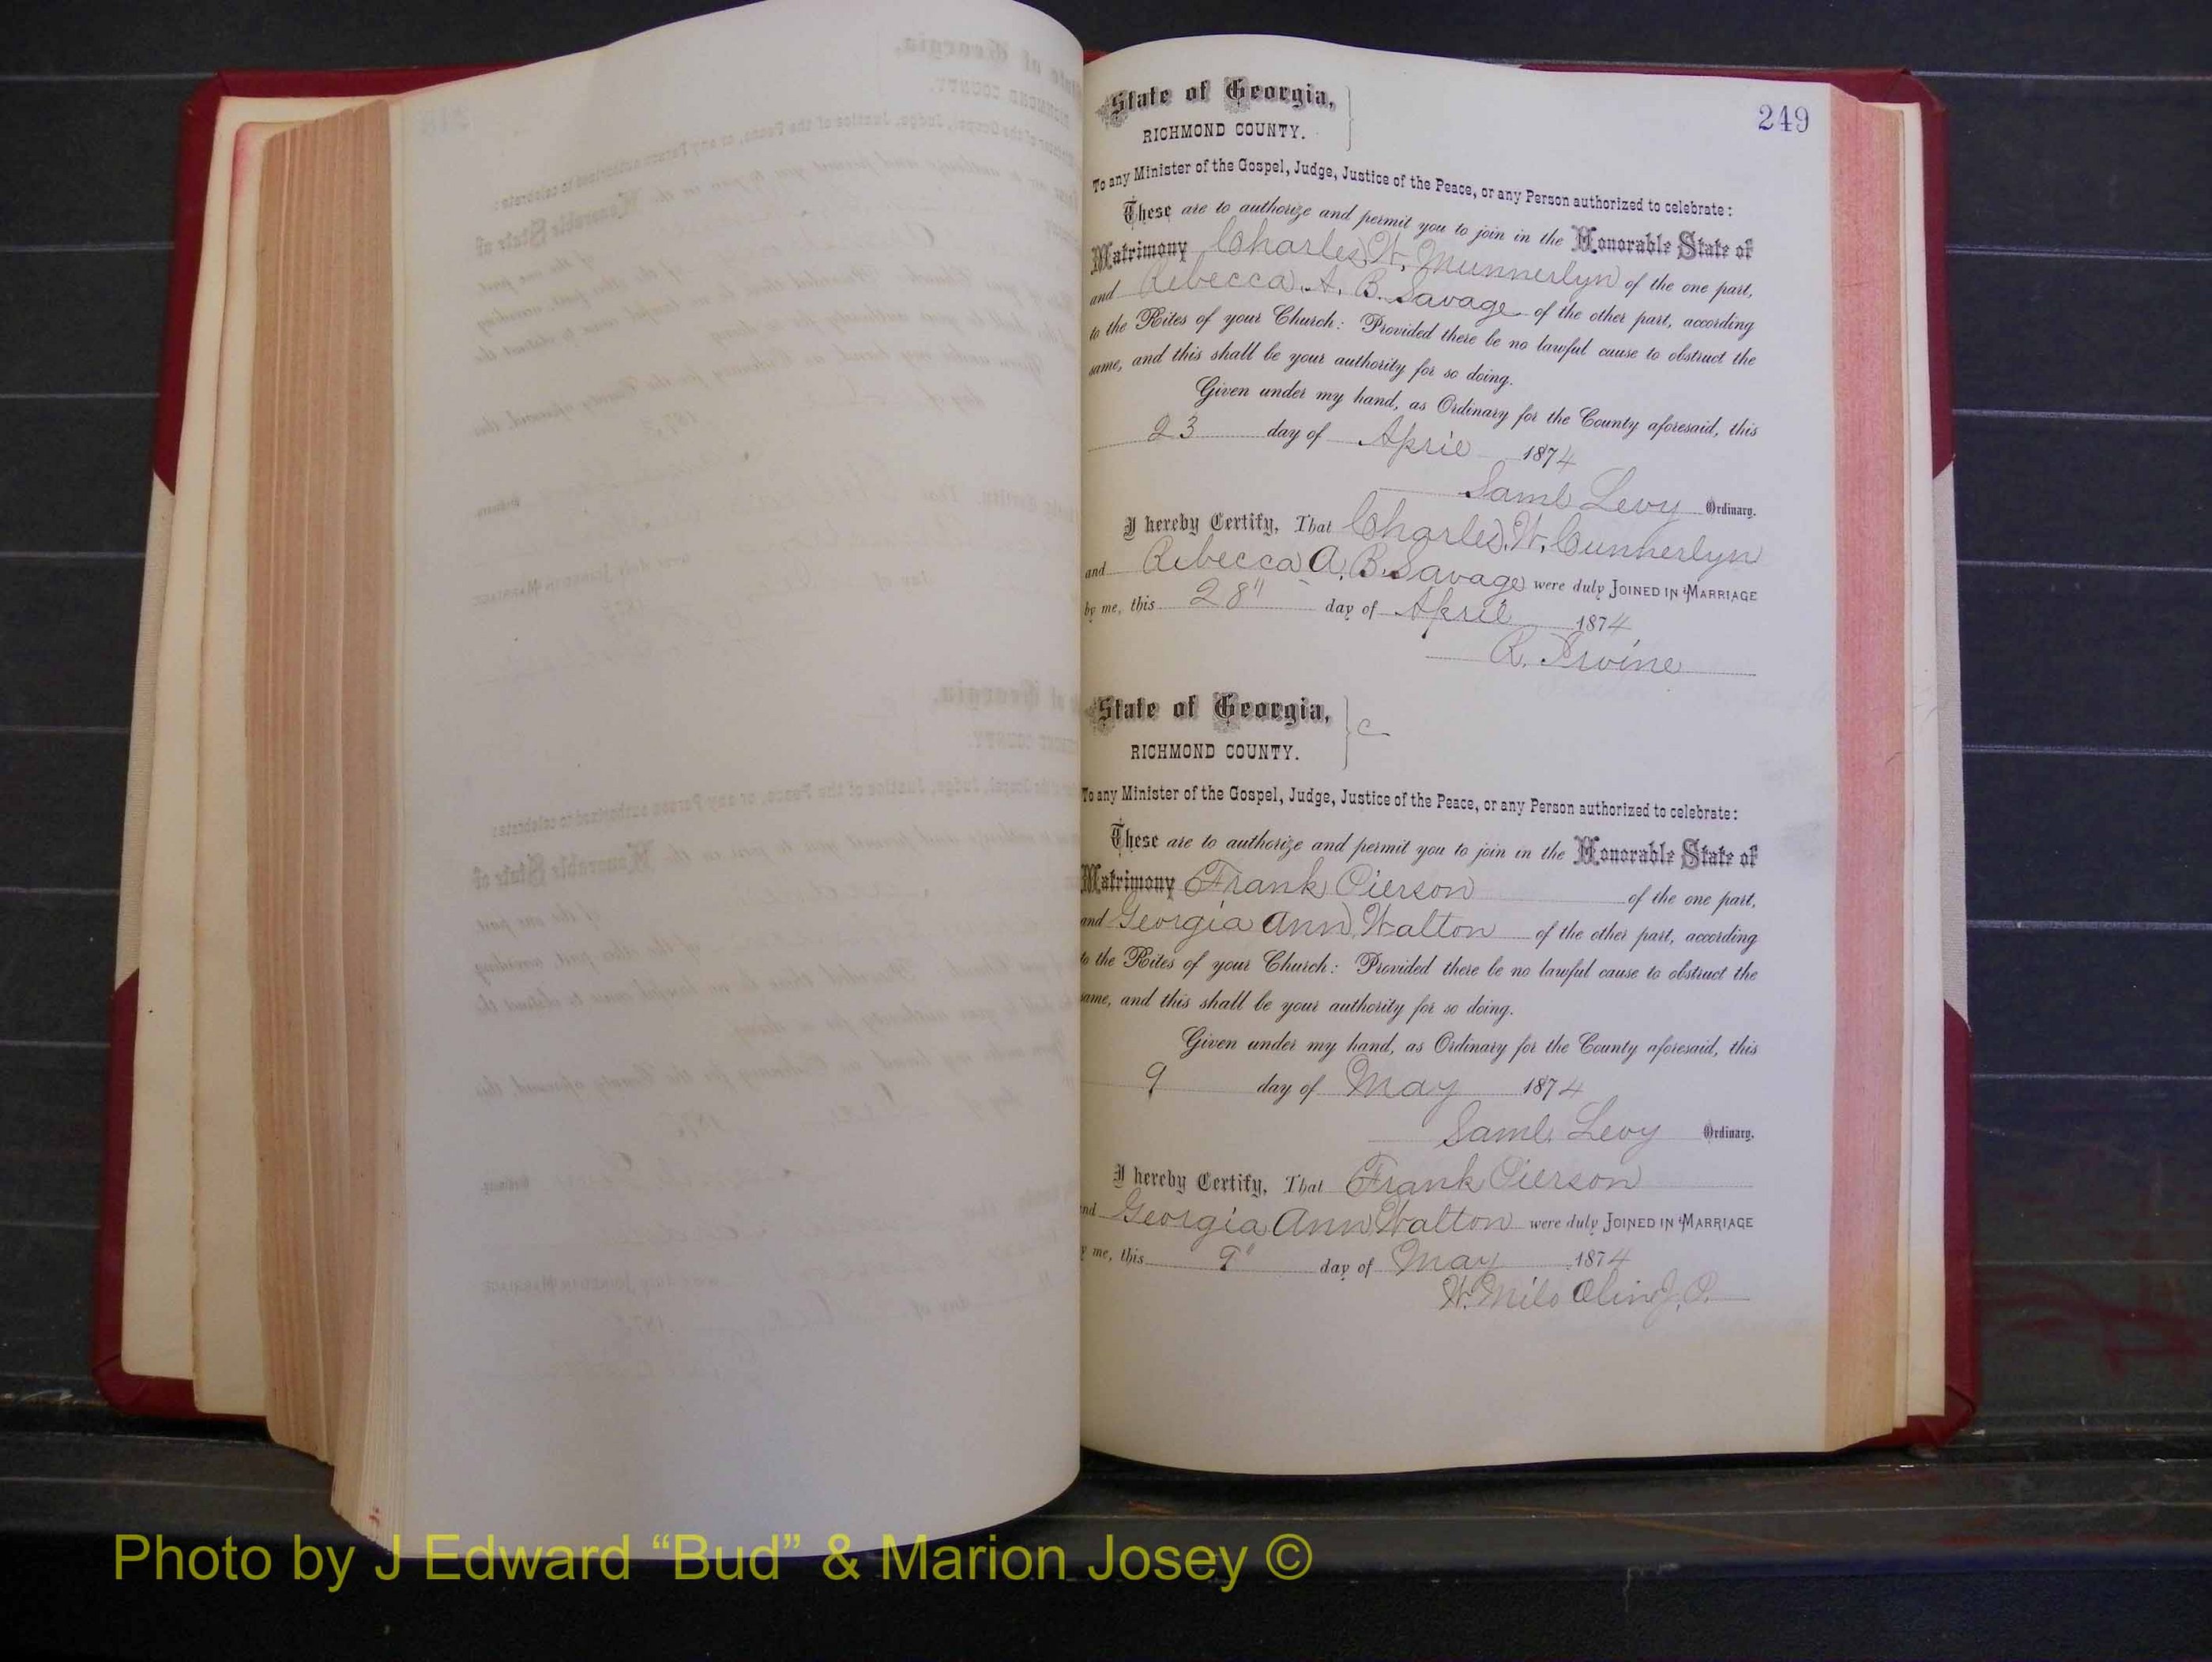 249
State of Georgia,
RICHMOND COUNTY.
To any Minister of the Gospel, Judge, Justice of the Peace, or any Person authorized to celebrate:
These are to authorize and permit you to join in the Honorable State of
Matrimony Charles W. Munnerlyn of the one part,
and Rebecca A. B. Savage of the other part, according
to the Rites of your Church: Provided there be no lawful cause to obstruct the
same, and this shall be your authority for so doing.
Given under my hand, as Ordinary for the County aforesaid, this
23 day of April 1874
Saml Levy Ordinary.
I hereby Certify, That Charles W. Cunnerlyn
and Rebecca A. B. Savage were duly JOINED IN MARRIAGE
by me, this 28" day of April 1874
R. Irvine
State of Georgia, C
RICHMOND COUNTY.
To any Minister of the Gospel, Judge, Justice of the Peace, or any Person authorized to celebrate:
These are to authorize and permit you to join in the Honorable State of
Matrimony Frank Pierson of the one part,
and Georgia Ann Walton of the other part, according
to the Rites of your Church: Provided there be no lawful cause to obstruct the
same, and this shall be your authority for so doing.
Given under my hand, as Ordinary for the County aforesaid, this
9 day of May 1874
Saml Levy Ordinary.
I hereby Certify, That Frank Pierson
and Georgia Ann Walton were duly JOINED IN MARRIAGE
by me, this 9" day of May 1874
W. Milo Olin J. P.
Photo by J Edward “Bud” & Marion Josey ©